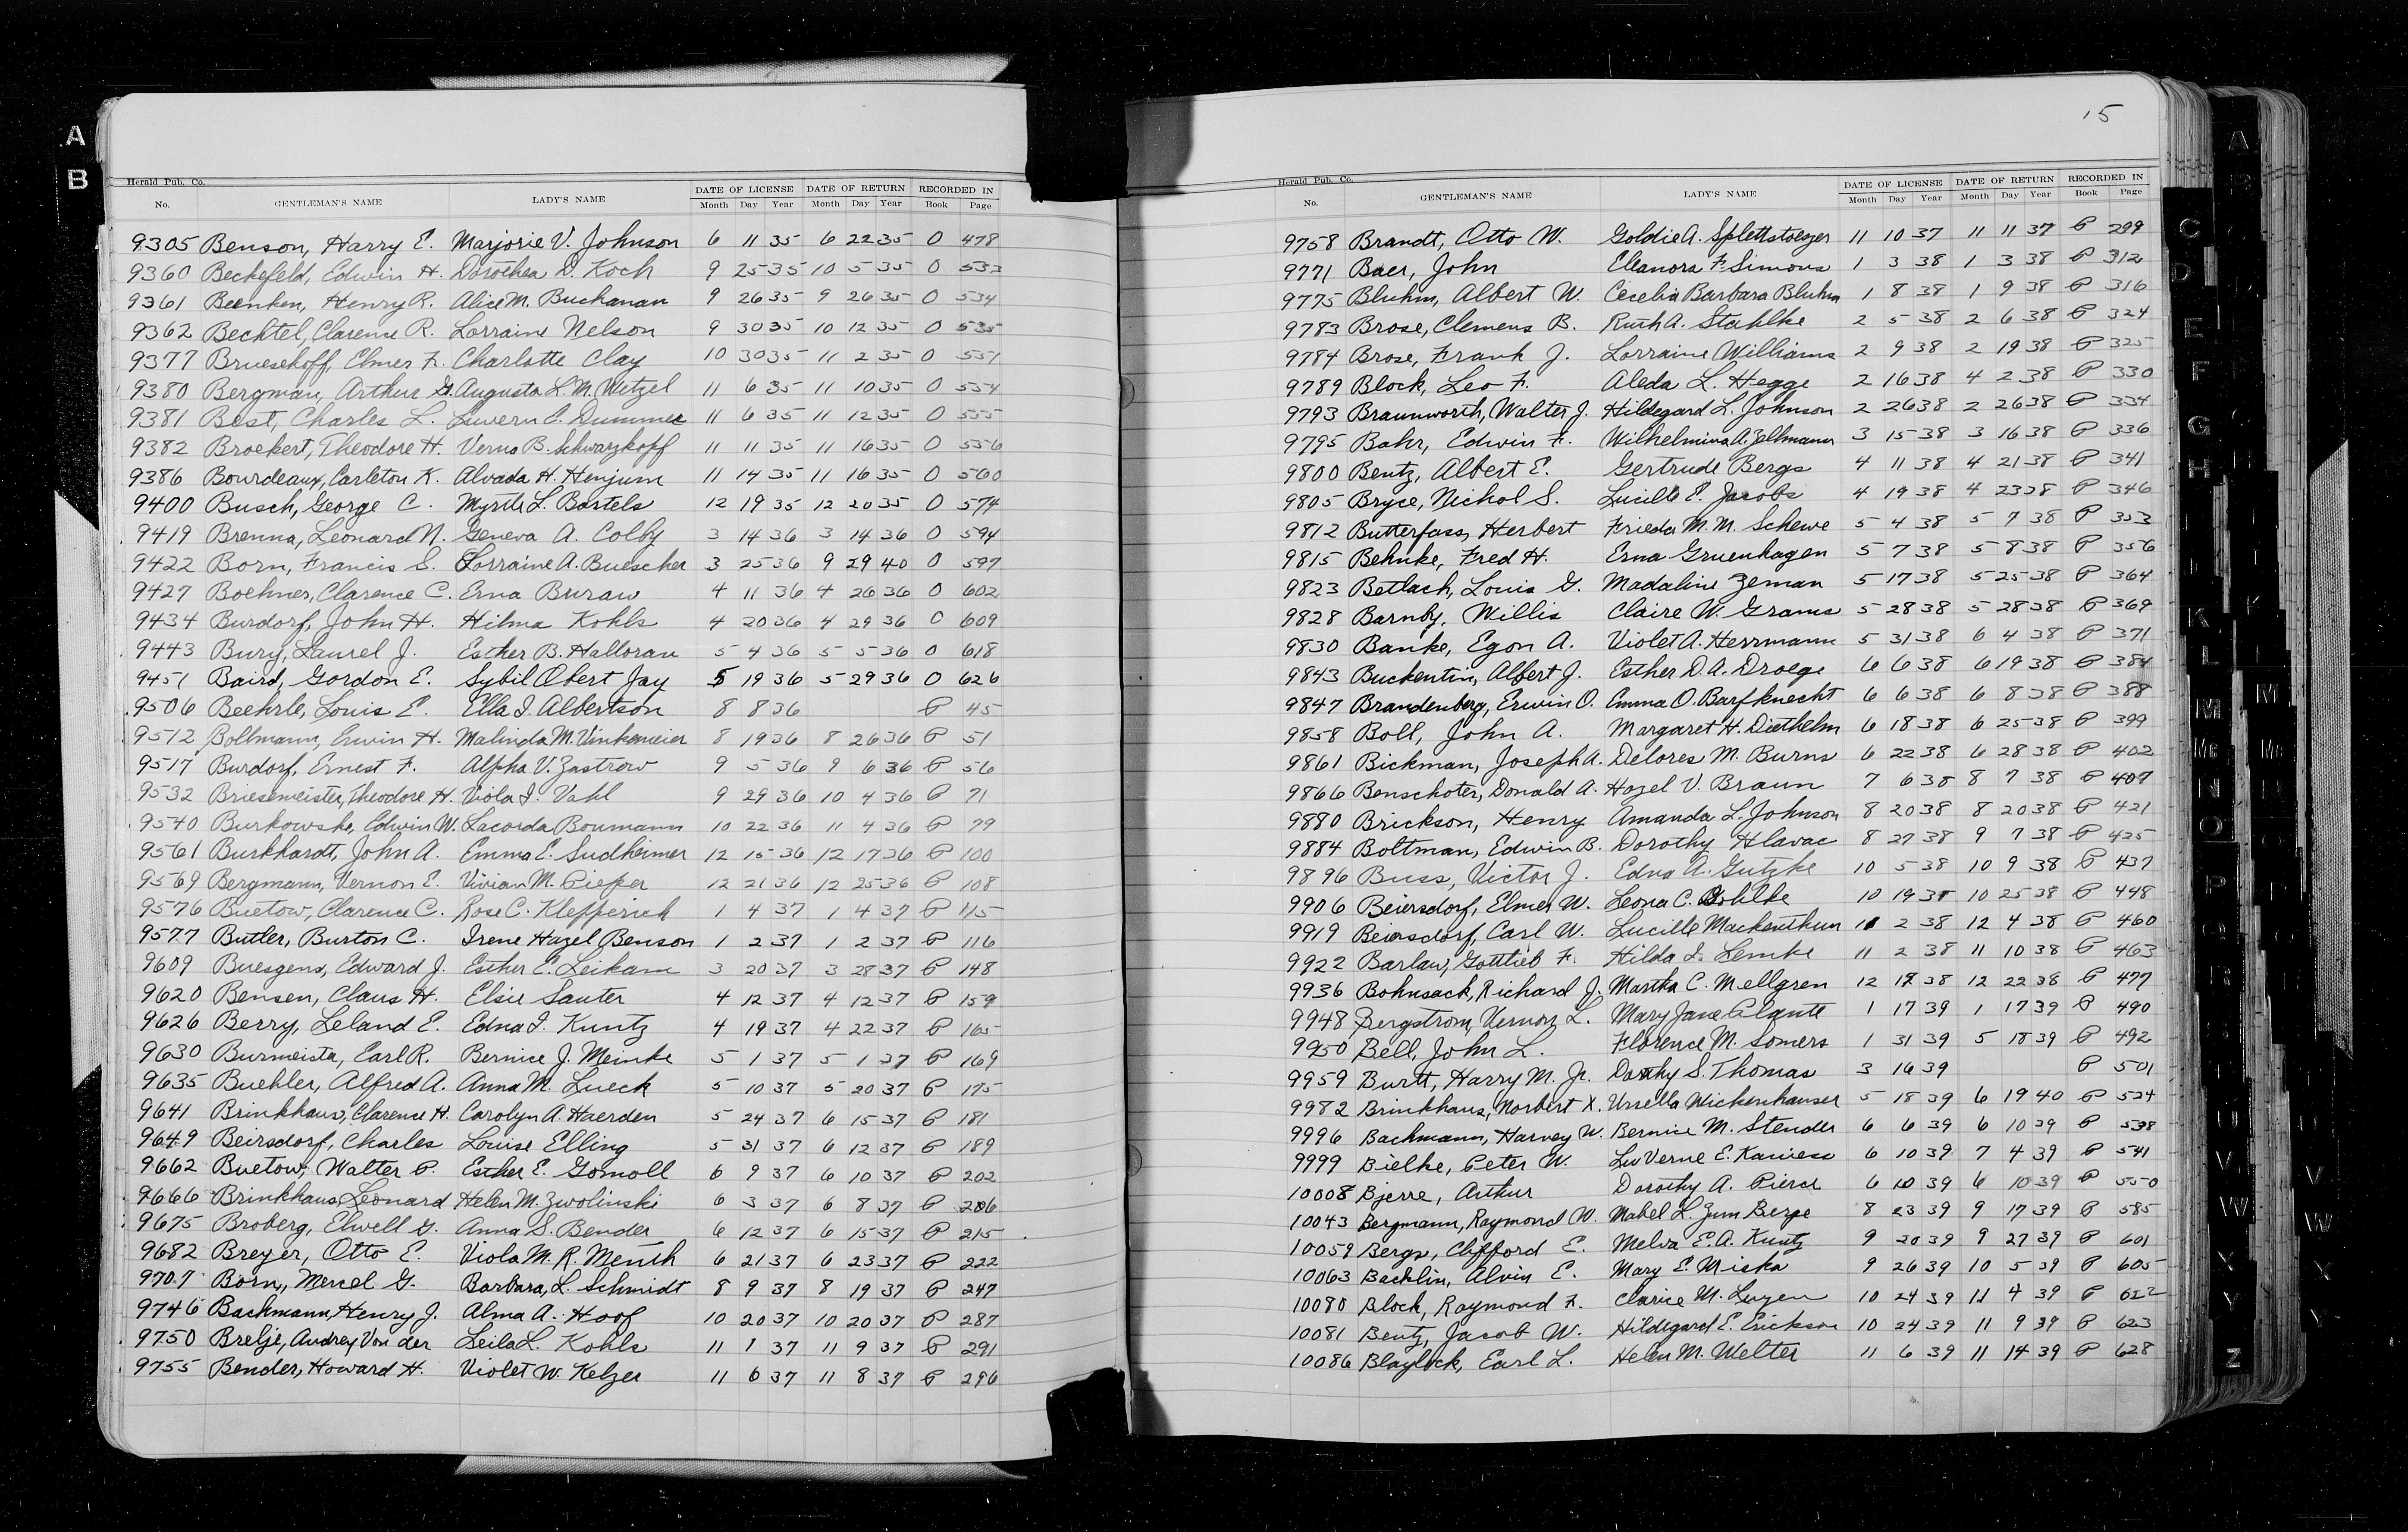 A
B
Herald Pub. Co.
No. GENTLEMAN'S NAME LADY'S NAME DATE OF LICENSE DATE OF RETURN RECORDED IN
Month Day Year Month Day Year Book Page
9305 Benson, Harry E. Marjorie V. Johnson 6 11 35 6 22 35 O 478
9360 Beckefeld, Edwin H. Dorothea D. Koch 9 25 35 10 5 35 O 533
9361 Beenken, Henry R. Alice M. Buchanan 9 26 35 9 26 35 O 534
9362 Bechtel, Clarence R. Lorraine Nelson 9 30 35 10 12 35 O 535
9377 Bruesehoff, Elmer F. Charlotte Clay 10 30 35 11 2 35 O 551
9380 Bergman, Arthur G. Augusta L. M. Wetzel 11 6 35 11 10 35 O 554
9381 Best, Charles L. Luvern E. Dummer 11 6 35 11 12 35 O 555
9382 Broekert, Theodore H. Verna B. Schwarzkopf 11 11 35 11 16 35 O 556
9386 Bourdeaux, Carleton K. Alvada H. Henjum 11 14 35 11 16 35 O 560
9400 Busch, George C. Myrtle L. Bartels 12 19 35 12 20 35 O 574
9419 Brenna, Leonard N. Geneva A. Colby 3 14 36 3 14 36 O 594
9422 Born, Francis S. Lorraine A. Buescher 3 25 36 9 29 40 O 597
9427 Boehner, Clarence C. Erna Buraw 4 11 36 4 26 36 O 602
9434 Burdorf, John H. Hilma Kohls 4 20 36 4 29 36 O 609
9443 Bury, Laurel J. Esther B. Halloran 5 4 36 5 5 36 O 618
9451 Baird, Gordon E. Sybil Obert Jay 5 19 36 5 29 36 O 626
9506 Beehrle, Louis E. Ella I. Albertson 8 8 36 P 45
9512 Bollmann, Erwin H. Malinda M. Vinkemeier 8 19 36 8 26 36 P 51
9517 Burdorf, Ernest F. Alpha V. Zastrow 9 5 36 9 6 36 P 56
9532 Briesemeister, Theodore H. Viola I. Vahl 9 29 36 10 4 36 P 71
9540 Burkowske, Edwin W. Lacorda Boumann 10 22 36 11 4 36 P 79
9561 Burkhardt, John A. Emma E. Sudheimer 12 15 36 12 17 36 P 100
9569 Bergmann, Vernon E. Vivian M. Pieper 12 21 36 12 25 36 P 108
9576 Buetow, Clarence C. Rose C. Klepperich 1 4 37 1 4 37 P 115
9577 Butler, Burton C. Irene Hazel Benson 1 2 37 1 2 37 P 116
9609 Buesgens, Edward J. Esther E. Leikam 3 20 37 3 28 37 P 148
9620 Bensen, Claus H. Elsie Sauter 4 12 37 4 12 37 P 159
9626 Berry, Leland E. Edna I. Kuntz 4 19 37 4 22 37 P 165
9630 Burmeister, Earl R. Bernice J. Meinke 5 1 37 5 1 37 P 169
9635 Buehler, Alfred A. Anna M. Lueck 5 10 37 5 20 37 P 175
9641 Brinkhaus, Clarence H. Carolyn A. Haerden 5 24 37 6 15 37 P 181
9649 Beirsdorf, Charles Louise Elling 5 31 37 6 12 37 P 189
9662 Buetow, Walter P. Esther E. Gomoll 6 9 37 6 10 37 P 202
9666 Brinkhaus, Leonard Helen M. Zwolinski 6 3 37 6 8 37 P 206
9675 Broberg, Elwell G. Anna S. Bender 6 12 37 6 15 37 P 215
9682 Breyer, Otto E. Viola M. R. Menth 6 21 37 6 23 37 P 222
9707 Born, Mercel G. Barbara, L. Schmidt 8 9 37 8 19 37 P 247
9746 Bachmann, Henry J. Alma A. Hoof 10 20 37 10 20 37 P 287
9750 Brelje, Audrey Von der Leila L. Kohls 11 1 37 11 9 37 P 291
9755 Bender, Howard H. Violet W. Kelzer 11 6 37 11 8 37 P 296
15
Herald Pub. Co.
No. GENTLEMAN'S NAME LADY'S NAME DATE OF LICENSE DATE OF RETURN RECORDED IN
Month Day Year Month Day Year Book Page
9758 Brandt, Otto W. Goldie A. Splettstoeszer 11 10 37 11 11 37 P 299
9771 Baer, John Eleanora F. Simons 1 3 38 1 3 38 P 312
9775 Bluhm, Albert W. Cecelia Barbara Bluhm 1 8 38 1 9 38 P 316
9783 Brose, Clemens B. Ruth A. Stahlke 2 5 38 2 6 38 P 324
9784 Brose, Frank J. Lorraine Williams 2 9 38 2 19 38 P 325
9789 Block, Leo F. Aleda L. Hegge 2 16 38 4 2 38 P 330
9793 Braunworth, Walter J. Hildegard L. Johnson 2 26 38 2 26 38 P 334
9795 Bahr, Edwin F. Wilhelmina A. Zellmann 3 15 38 3 16 38 P 336
9800 Bentz, Albert E. Gertrude Bergs 4 11 38 4 21 38 P 341
9805 Bryce, Nichol S. Lucille E. Jacobs 4 19 38 4 23 38 P 346
9812 Butterfass, Herbert Frieda M. M. Schewe 5 4 38 5 7 38 P 353
9815 Behnke, Fred H. Erna Gruenhagen 5 7 38 5 8 38 P 356
9823 Betlach, Louis G. Madaline Zeman 5 17 38 5 25 38 P 364
9828 Barnby, Willis Claire W. Grams 5 28 38 5 28 38 P 369
9830 Banke, Egon A. Violet A. Herrmann 5 31 38 6 4 38 P 371
9843 Buckentin, Albert J. Esther D. A. Droege 6 6 38 6 19 38 P 384
9847 Brandenberg, Erwin O. Emma O. Barfknecht 6 6 38 6 8 38 P 388
9858 Boll, John A. Margaret H. Diethelm 6 18 38 6 25 38 P 399
9861 Bickman, Joseph A. Delores M. Burns 6 22 38 6 28 38 P 402
9866 Benschoter, Donald A. Hazel V. Braun 7 6 38 8 7 38 P 407
9880 Brickson, Henry Amanda L. Johnson 8 20 38 8 20 38 P 421
9884 Boltman, Edwin B. Dorothy Hlavac 8 27 38 9 7 38 P 425
9896 Buss, Victor J. Edna A. Gutzke 10 5 38 10 9 38 P 437
9906 Beiersdorf, Elmer W. Leona C. Gohlke 10 19 38 10 25 38 P 448
9919 Beiersdorf, Carl W. Lucille Mackenthun 11 2 38 12 4 38 P 460
9922 Barlau, Gottlieb F. Hilda L. Lemke 11 2 38 11 10 38 P 463
9936 Bohnsack, Richard J. Martha C. Mellgren 12 17 38 12 22 38 P 477
9948 Bergstrom, Vernon L. Mary Jane Plante 1 17 39 1 17 39 P 490
9950 Bell, John L. Florence M. Somers 1 31 39 5 18 39 P 492
9959 Burtt, Harry M. Jr. Dorthy S. Thomas 3 16 39 P 501
9982 Brinkhaus, Norbert X. Urselia Wickenhauser 5 18 39 6 19 40 P 524
9996 Bachmann, Harvey W. Bernice M. Stender 6 6 39 6 10 39 P 538
9999 Bielke, Peter W. LuVerne E. 6 10 39 7 4 39 P 541
10008 Bjerre, Arthur Dorothy A. Pierce 6 10 39 6 10 39 P 550
10043 Bergmann, Raymond W. Mabel L. Zum Berge 8 23 39 9 17 39 P 585
10059 Bergs, Clifford E. Melva E. A. Kuntz 9 20 39 9 27 39 P 601
10063 Backlin, Alvin E. Mary E. Miska 9 26 39 10 5 39 P 605
10080 Block, Raymond F. Clarice M. Luyen 10 24 39 11 4 39 P 622
10081 Bentz, Jacob W. Hildegard E. Erickson 10 24 39 11 9 39 P 623
10086 Blaylock, Earl L. Helen M. Welter 11 6 39 11 14 39 P 628
C
D
E
F
G
H
K
L
M
Mc
N
O
P
U
V
W
X
Y
Z